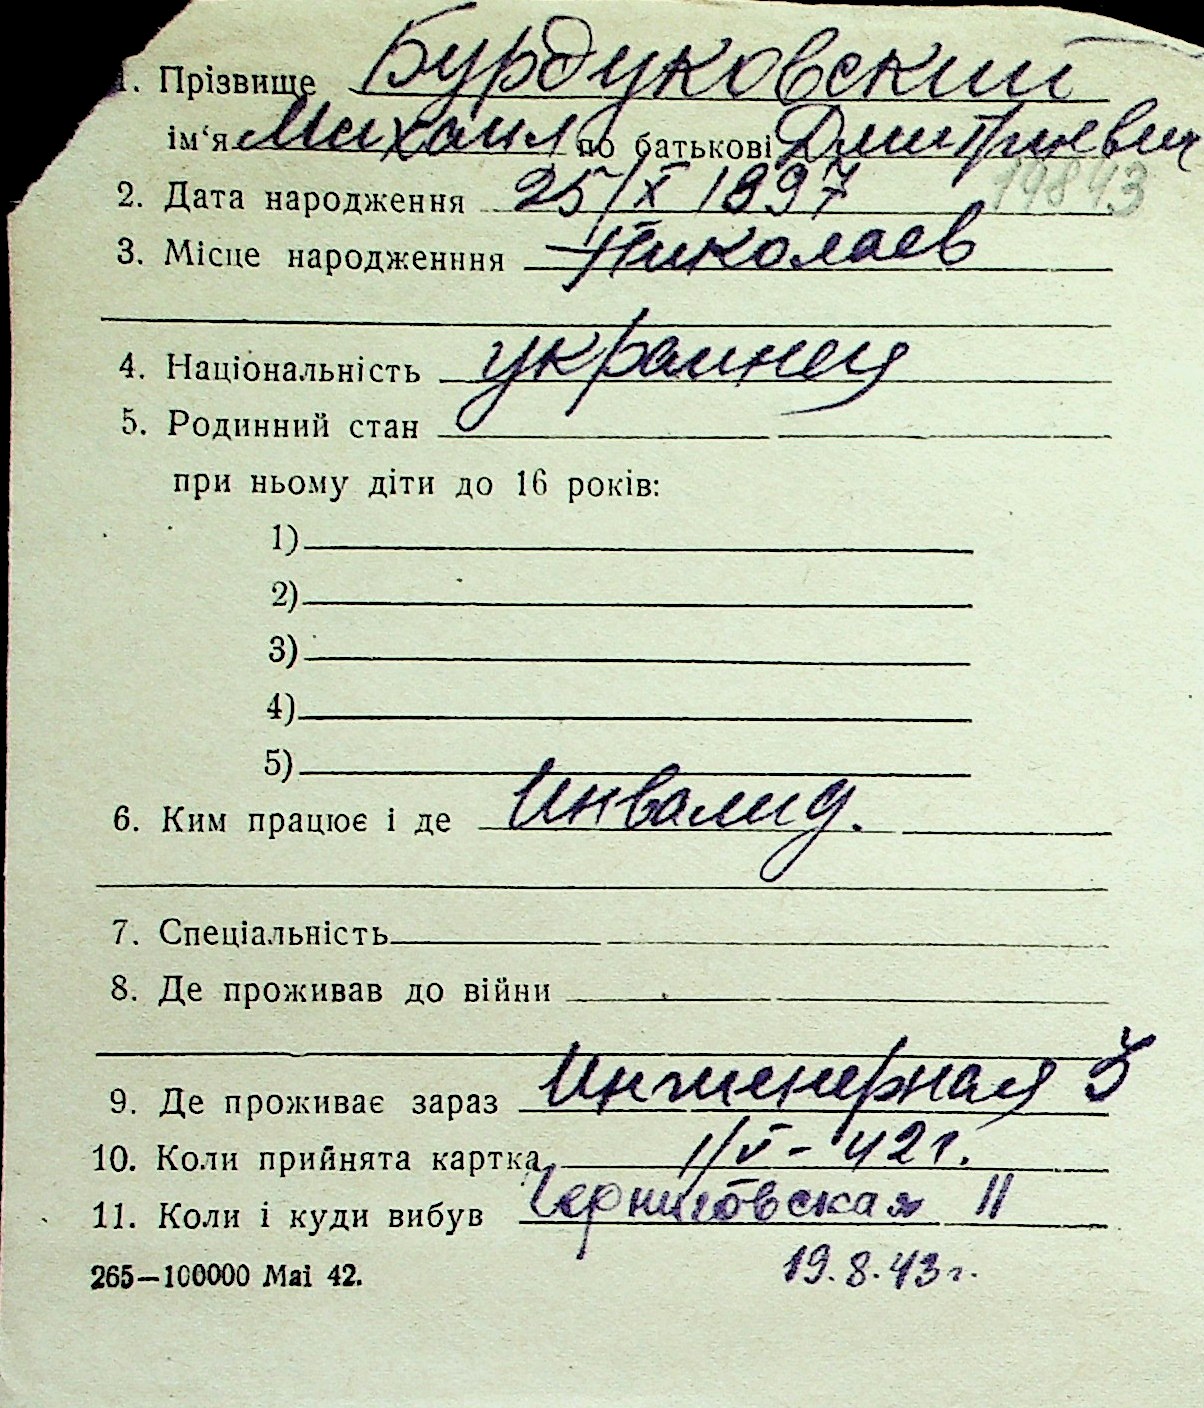 1. Прізвище Бурдуковский
ім‘я Михаил по батькові Дмитриевич
2. Дата народження 25/X 1897 19843
3. Місце народженння Николаев
4. Національність украинец
5. Родинний стан
при ньому діти до 16 років:
1)
2)
3)
4)
5)
6. Ким працює і де Инвалид.
7. Спеціальність
8. Де проживав до війни
9. Де проживає зараз Инженерная 3
10. Коли прийнята картка 1/V – 42 г.
11. Коли і куди вибув Черниговская 11
265—100000 Mai 42. 19.8.43 г.